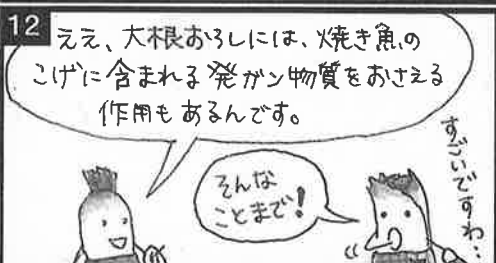 12
ええ、大根おろしには、焼き魚の
こげに含まれる発ガン物質をおさえる
作用もあるんです。
そんな
ことまで!
すごいですわ…